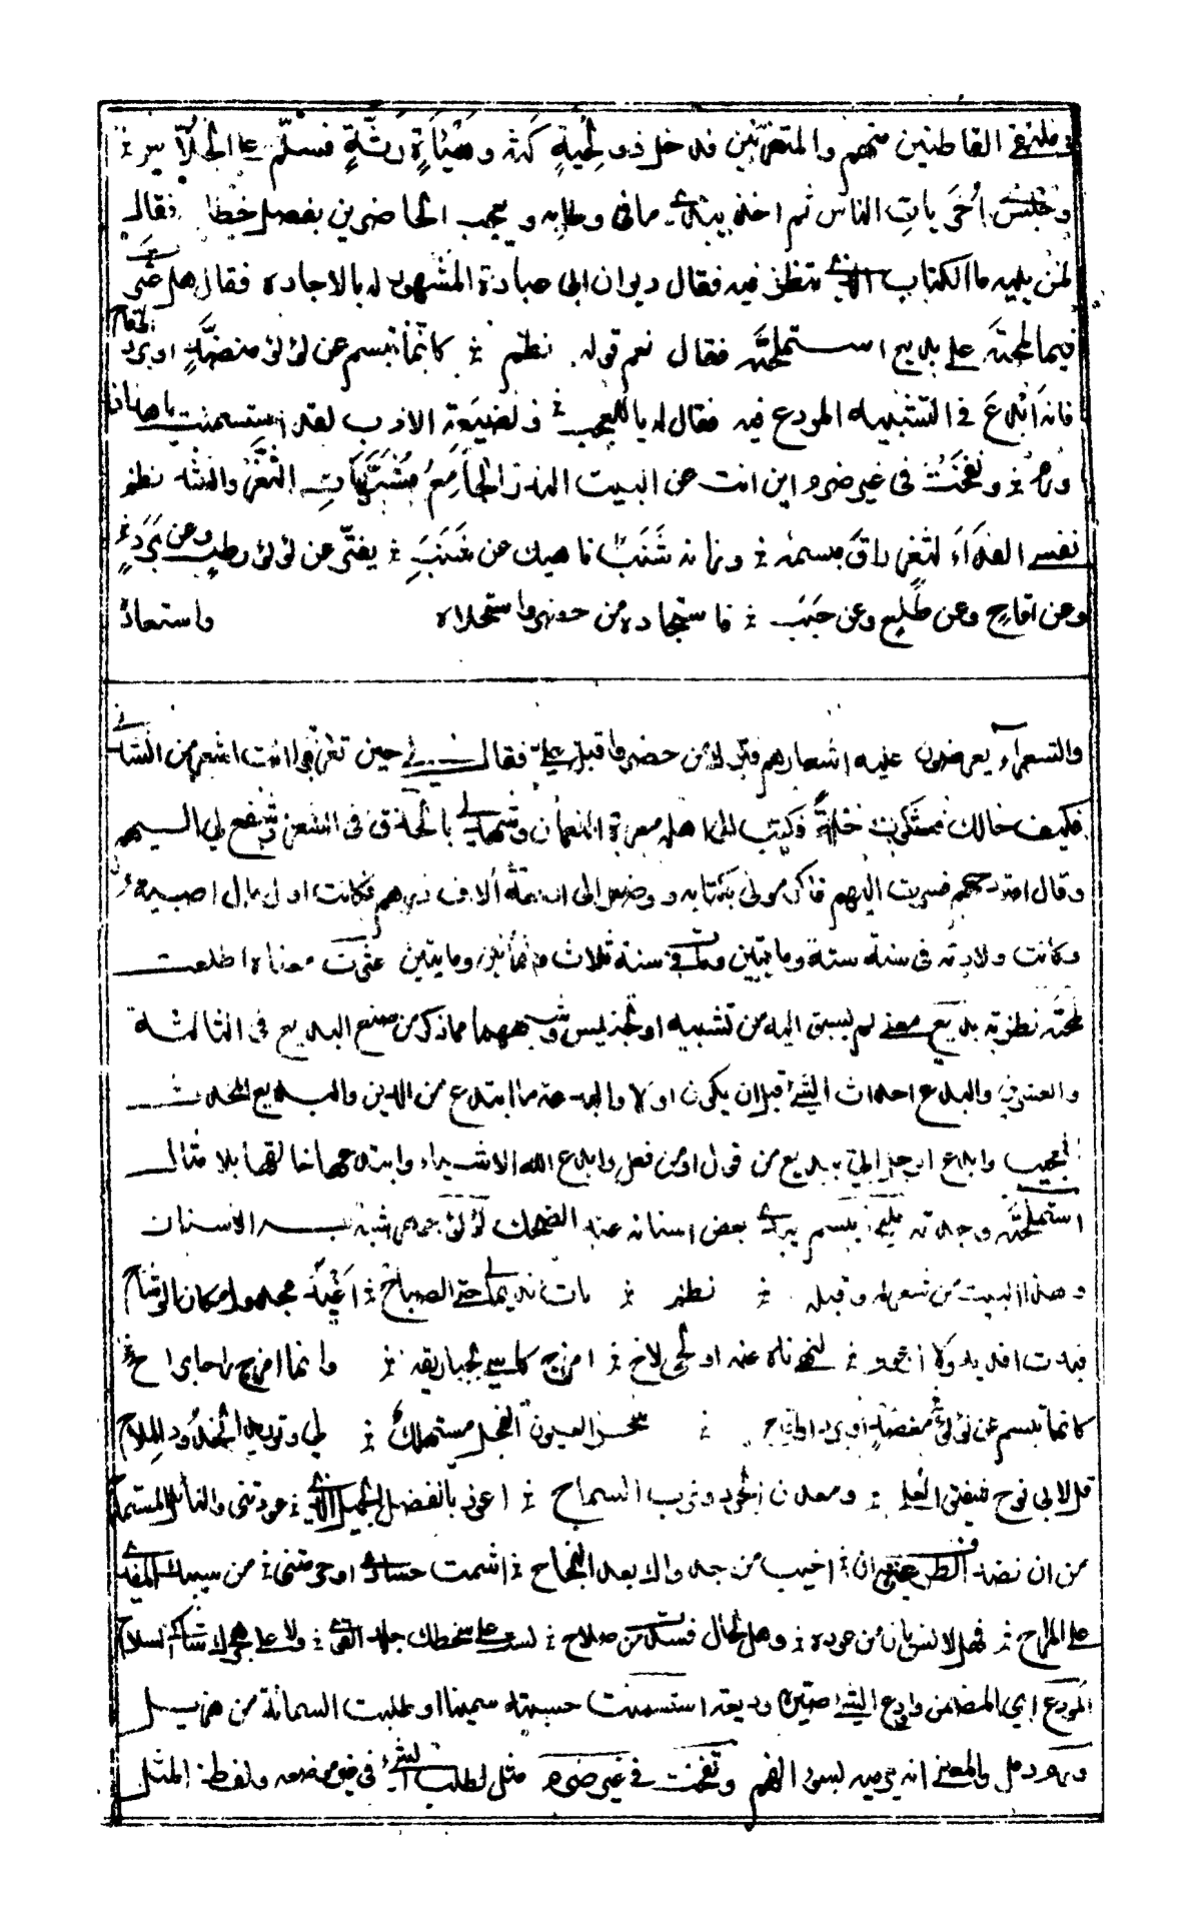 وملتقى القاطنين منهم والمتغربين فدخل ذو لحية كثة وهيأة رثة فسلم على الجلاس
وجلس في أخريات الناس ثم اخذ يبدي ما في وطابه ويعجب الحاضرين بفصل خطابه فقال
لمن يليه ما الكتاب الذي تنظر فيه فقال ديوان ابي عبادة المشهود له بالاجادة فقال هل عثرت
فيما لمحته على بديع استملحته فقال نعم قوله نظم كانما تبسم عن لؤلؤ منضد او برد او اقاح
فانه ابدع في التشبيه المودع فيه فقال له يا للعجب ولضيعة الادب لقد استسمنت يا هذا ذا
ورم ونفخت في غير ضرم اين انت عن البيت الندر الجامع مشبهات الثغر وانشد نظم
نفسي الفداء لثغر راق مبسمه وزانه شنب ناهيك عن شنب يفتر عن لؤلؤ رطب وعن برد
وعن اقاح وعن طلع وعن حبب فاستجاده من حضر واستحلاه واستعاد
والشعراء يعرضون عليه اشعارهم فترك من حضر واقبل علي فقال لي حين تفرقوا انت اشعر من انشدني
فكيف حالك فشكوت خلة فكتب الى اهل معرة النعمان وشهد لي بالحذق في الشعر وشفع لي اليهم
وقال امتدحهم فسرت اليهم فاكرموني بكتابه ووظفوا لي اربعة آلاف درهم فكانت اول مال اصبته
وكانت ولادته في سنة ستة ومايتين ومات في سنة ثلاث وثمانين ومايتين عثرت معناه اطلعت
لمحته نظرته بديع معنى لم يسبق اليه من تشبيه او تجنيس وشبههما مما ذكر من صنع البديع في الثالثة
والعشرين والبدع احداث الشئ قبل ان يكون اولا والبدعة ما ابتدع من الدين والبديع المحدث
العجيب وابدع الرجل اتى ببديع من قول او من فعل وابدع الله الاشياء وابتدعها خالقها بلا مثال
استملحته وجدته مليحا يبسم يبدي بعض اسنانه عند الضحك لؤلؤ جوهر شبه به الاسنان
وهذا البيت من شعر له وقبله نظم بات نديما لي حتى الصباح اغيد مجدول مكان الوشاح
فبت افديه ولا ارعوي لنهي ناه عنه او لحي لاح امزج كاسي بجنا ريقه وانما امزج راحا براح
كانما تبسم عن لؤلؤ منضد او برد او اقاح سحر العيون النجل مستهلك لبي وتوريد الخدود الملاح
قل لابي نوح شقيق العلى ومعدن الجود وترب السماح اعوذ بالفضل الجميل الذي عودتني والنائل المستماح
من ان تصد الطرف عني وان اخيب من جدواك بعد النجاح اشمت حسادي او حشتني من سيبك المغدي
على المراح فهل لانس بان من عودة وهل لحال فسدت من صلاح لست على سخطك جلد القوى ولا على هجرك شاكي السلاح
المودع اي المضمن واودع الشئ اصيره وديعة استسمنت حسبته سمينا او طلبت السمانة من هزيل
وورم دمل والمعنى انه يرميه بسوء الفهم ونفخت في غير ضرم مثل لطلب الشئ في غير موضعه ولفظ المثل